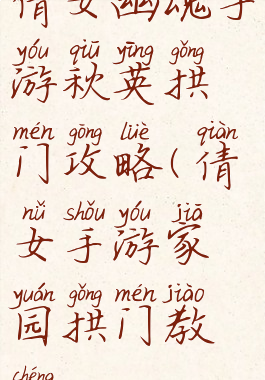 倩女幽魂手
yóu qiū yīng gǒng
游秋英拱
mén gōng lüè qiàn
门攻略(倩
nǚ shǒu yóu jiā
女手游家
yuán gǒng mén jiào
园拱门教
chéng